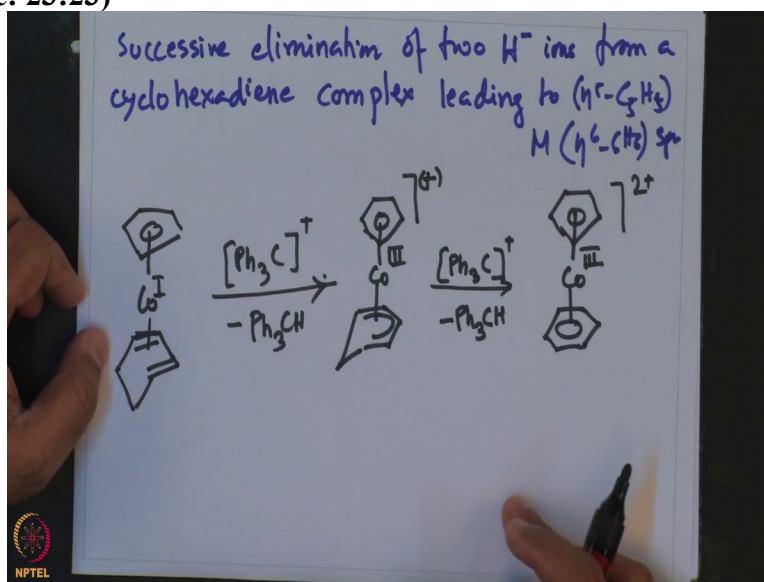 Successive elimination of two H⁻ ions from a
cyclohexadiene complex leading to (η⁵-C₅H₅)
M(η⁶-C₆H₆)
](+)
]2+
[Ph₃C]⁺
[Ph₃C]⁺
Coᴵ
Coᴵᴵᴵ
Coᴵᴵᴵ
- Ph₃CH
- Ph₃CH
NPTEL